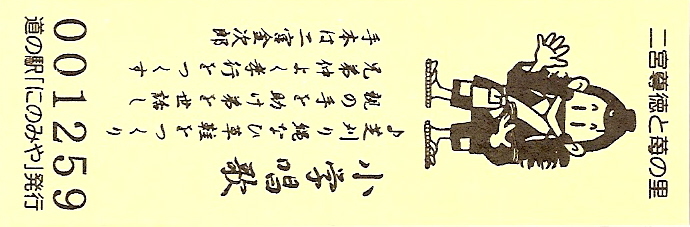 二宮尊徳と苺の里
小学唱歌
♪芝刈り縄ない草鞋をつくり
親の手を助け弟を世話し
兄弟仲よく孝行をつくす
手本は二宮金次郎
001259
道の駅「にのみや」発行